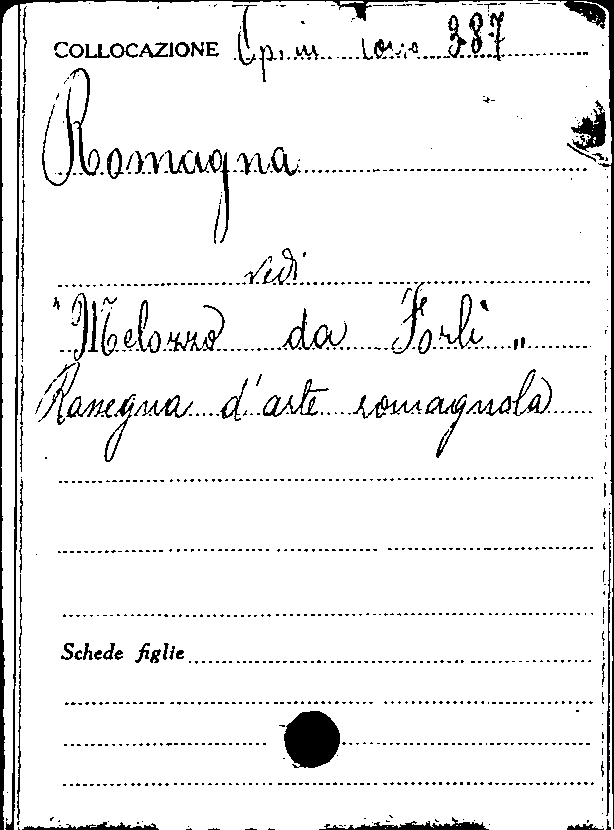 COLLOCAZIONE 387
Romagna
vedi
"Melozzo da Forlì"
Rassegna d'arte romagnola
Schede figlie